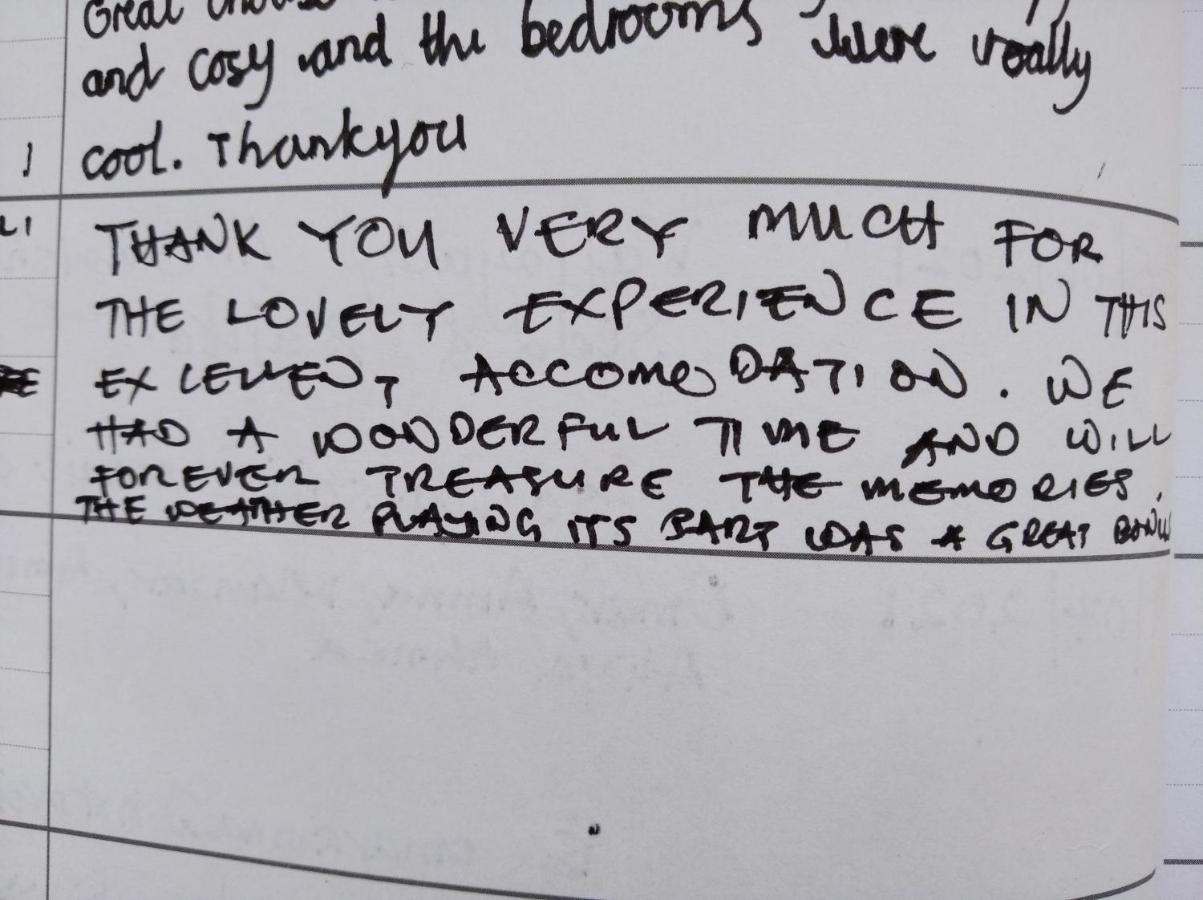 Great
and cosy and the bedrooms were really
cool. Thankyou
THANK YOU VERY MUCH FOR
THE LOVELY EXPERIENCE IN THIS
EXLELLENT ACCOMODATION. WE
HAD A WONDERFUL TIME AND WILL
FOREVER TREASURE THE MEMORIES.
THE WEATHER PLAYING ITS PART WAS A GREAT BONUS